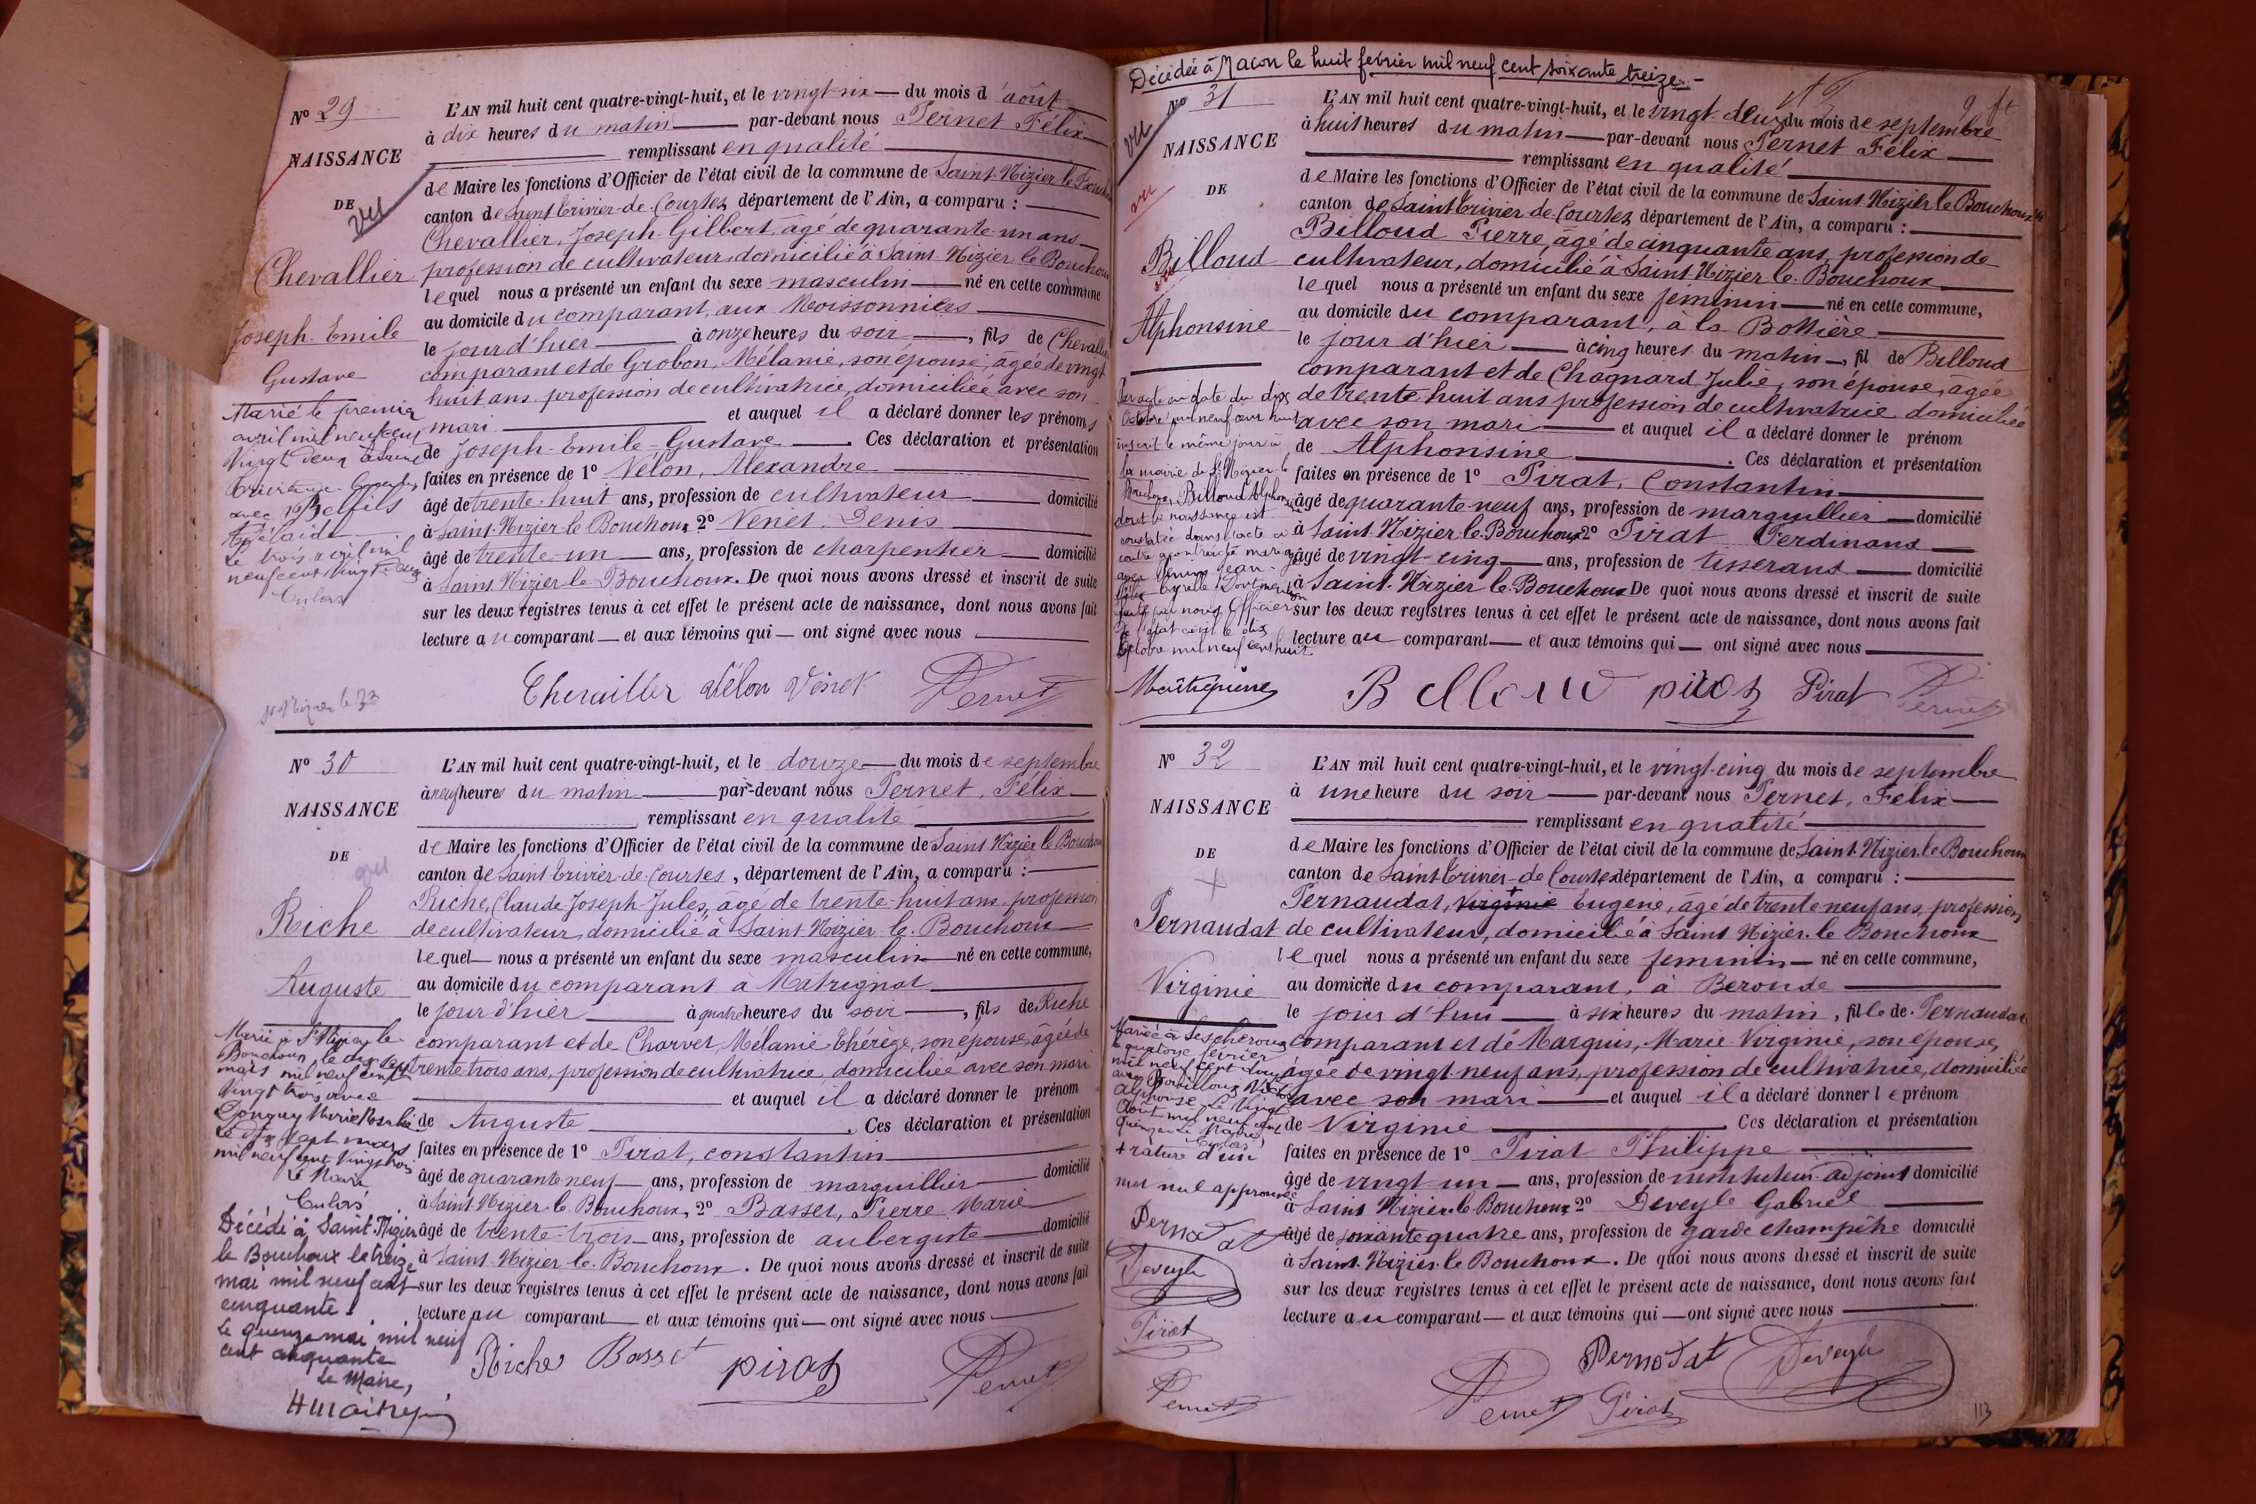 N° 29
NAISSANCE
DE
vu
Chevallier
Joseph-Emile
Gustave
Marié le premier
avril mil neuf cent
vingt deux à Saint
avec Belfils
Adélaïde
Le trois avril mil
neuf cent vingt-deux
L'AN mil huit cent quatre-vingt-huit, et le vingt-six du mois d'août
à dix heures du matin par-devant nous Pernet Félix
remplissant en qualité
de Maire les fonctions d'Officier de l'état civil de la commune de Saint-Nizier le Bouchoux
canton de Saint Trivier-de-Courtes, département de l'Ain, a comparu :
Chevallier, Joseph-Gilbert, âgé de quarante-un ans
profession de cultivateur, domicilié à Saint-Nizier le Bouchoux
lequel nous a présenté un enfant du sexe masculin né en cette commune
au domicile du comparant, aux Moissonniers
le jour d'hier à onze heures du soir, fils de Chevallier
comparant et de Grobon, Mélanie, son épouse, âgée de vingt
huit ans, profession de cultivatrice, domiciliée avec son
mari et auquel il a déclaré donner les prénoms
de Joseph-Emile-Gustave. Ces déclaration et présentation
faites en présence de 1° Vélon, Alexandre
âgé de trente-huit ans, profession de cultivateur domicilié
à Saint-Nizier le Bouchoux 2° Venet, Denis
âgé de trente-un ans, profession de charpentier domicilié
à Saint Nizier-le-Bouchoux. De quoi nous avons dressé et inscrit de suite
sur les deux registres tenus à cet effet le présent acte de naissance, dont nous avons fait
lecture au comparant et aux témoins qui ont signé avec nous
Chevallier Vélon Venet Pernet
N° 30
NAISSANCE
DE
vu
Riche
Auguste
Marié à St Nizier-le-
Bouchoux le dix sept
mars mil neuf cent
vingt trois avec
Gonguy Marie Rosalie
Le dix sept mars
mil neuf cent vingt trois
Le Maire
Décédé à Saint-Nizier
le Bouchoux le treize
mai mil neuf cent
cinquante.
le quinze mai mil neuf
cent cinquante
Le Maire,
L'AN mil huit cent quatre-vingt-huit, et le douze du mois de septembre
à neuf heures du matin par-devant nous Pernet, Félix
remplissant en qualité
de Maire les fonctions d'Officier de l'état civil de la commune de Saint Nizier le Bouchoux
canton de Saint Trivier-de-Courtes, département de l'Ain, a comparu :
Riche, Claude-Joseph-Jules, âgé de trente-huit ans, profession
de cultivateur, domicilié à Saint-Nizier-le-Bouchoux
lequel nous a présenté un enfant du sexe masculin né en cette commune,
au domicile du comparant à Matrignat
le jour d'hier à quatre heures du soir, fils de Riche
comparant et de Charvet, Mélanie-Thérèze, son épouse, âgée de
trente trois ans, profession de cultivatrice, domiciliée avec son mari
et auquel il a déclaré donner le prénom
de Auguste. Ces déclaration et présentation
faites en présence de 1° Pirat, constantin
âgé de quarante neuf ans, profession de marguillier domicilié
à Saint-Nizier-le-Bouchoux, 2° Basset, Pierre Marie
âgé de trente-trois ans, profession de aubergiste domicilié
à Saint-Nizier-le-Bouchoux. De quoi nous avons dressé et inscrit de suite
sur les deux registres tenus à cet effet le présent acte de naissance, dont nous avons fait
lecture au comparant et aux témoins qui ont signé avec nous
Riche Basset pirat Pernet
Décédée à Macon le huit février mil neuf cent soixante treize.
N° 31
vu
NAISSANCE
DE
vu
Billoud
vu
Alphonsine
Par acte en date du dix
Octobre mil neuf cent huit
inscrit le même jour à
la mairie de St Nizier-le
Bouchoux, Billoud Alphonsine
dont la naissance est
constatée dans l'acte ci
contre a contracté mariage
avec
fait par nous Officier
de l'état civil le dix
Octobre mil neuf cent huit
L'AN mil huit cent quatre-vingt-huit, et le vingt-deux du mois de septembre
à huit heures du matin par-devant nous Pernet Félix
remplissant en qualité
de Maire les fonctions d'Officier de l'état civil de la commune de Saint Nizier le Bouchoux
canton de Saint Trivier-de-Courtes, département de l'Ain, a comparu :
Billoud Pierre, âgé de cinquante ans, profession de
cultivateur, domicilié à Saint Nizier-le-Bouchoux
lequel nous a présenté un enfant du sexe féminin né en cette commune,
au domicile du comparant, à la Bottière
le jour d'hier à cinq heures du matin, fil de Billoud
comparant et de Chagnard Julie, son épouse, âgée
de trente huit ans profession de cultivatrice domiciliée
avec son mari et auquel il a déclaré donner le prénom
de Alphonsine. Ces déclaration et présentation
faites en présence de 1° Pirat, Constantin
âgé de quarante-neuf ans, profession de marguillier domicilié
à Saint Nizier-le-Bouchoux 2° Pirat Ferdinand
âgé de vingt-cinq ans, profession de tisserand domicilié
à Saint-Nizier le Bouchoux De quoi nous avons dressé et inscrit de suite
sur les deux registres tenus à cet effet le présent acte de naissance, dont nous avons fait
lecture au comparant et aux témoins qui ont signé avec nous
Billoud pirat Pirat Pernet
N° 32
NAISSANCE
DE
Pernaudat
Virginie
Mariée à Lescheroux
le quatorze février
mil neuf cent
avec Bouilloux
Alphonse. Le vingt
Août mil neuf cent
+ rature d'un
mot nul approuvée
Pernodat
Deveyle
Pirat
Pernet
L'AN mil huit cent quatre-vingt-huit, et le vingt-cinq du mois de septembre
à une heure du soir par-devant nous Pernet, Félix
remplissant en qualité
de Maire les fonctions d'Officier de l'état civil de la commune de Saint-Nizier le Bouchoux
canton de Saint Trivier-de Courtes département de l'Ain, a comparu :
Pernaudat, Virginie Eugène, âgé de trente neuf ans, profession
de cultivateur, domicilié à Saint Nizier-le Bouchoux
lequel nous a présenté un enfant du sexe féminin né en cette commune,
au domicile du comparant, à Beronde
le jour d'hui à six heures du matin, fille de Pernaudat
comparant et de Marquis, Marie Virginie, son épouse,
âgée de vingt-neuf ans, profession de cultivatrice, domiciliée
avec son mari et auquel il a déclaré donner le prénom
de Virginie Ces déclaration et présentation
faites en présence de 1° Pirat Philippe
âgé de vingt-un ans, profession de instituteur-adjoint domicilié
à Saint Nizier-le-Bouchoux 2° Deveyle Gabriel
âgé de soixante quatre ans, profession de garde champêtre domicilié
à Saint-Nizier-le Bouchoux. De quoi nous avons dressé et inscrit de suite
sur les deux registres tenus à cet effet le présent acte de naissance, dont nous avons fait
lecture au comparant et aux témoins qui ont signé avec nous
Pernodat Deveyle
Pernet Pirat
113